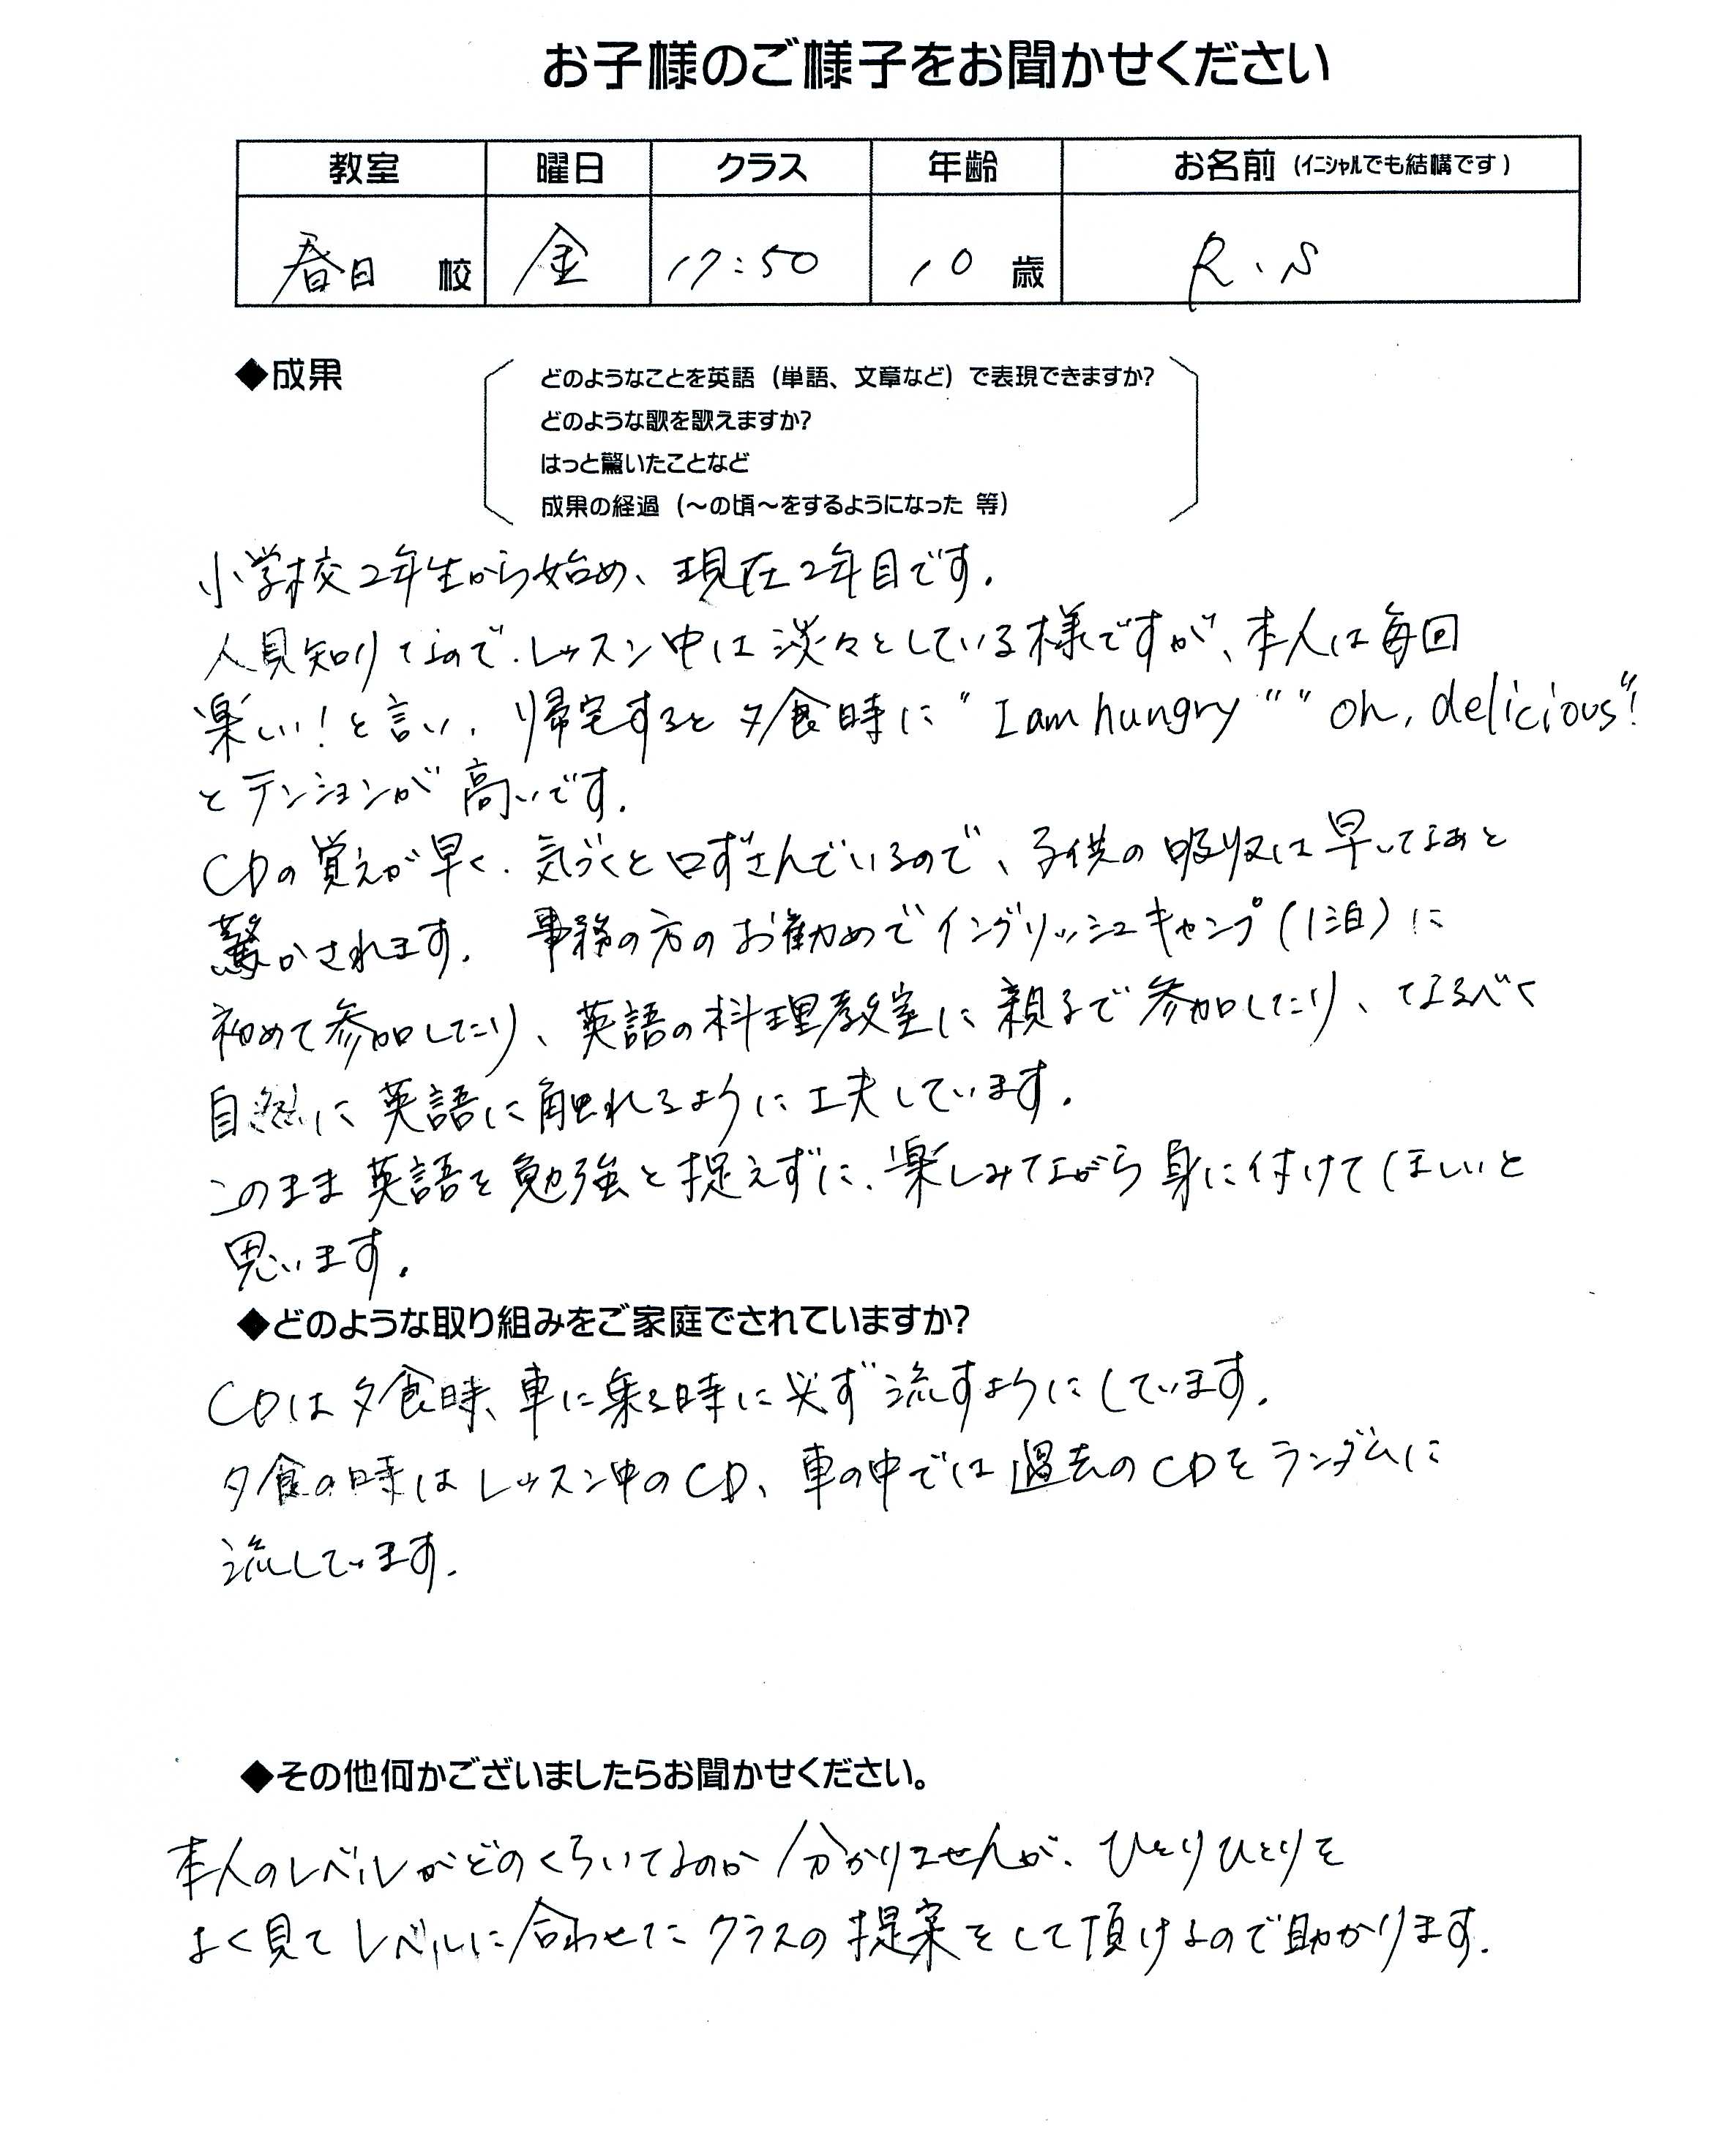 お子様のご様子をお聞かせください
教室 曜日 クラス 年齢 お名前 (イニシャルでも結構です)
春日 校 金 17:50 10 歳 R.S
◆成果
どのようなことを英語(単語、文章など)で表現できますか?
どのような歌を歌えますか?
はっと驚いたことなど
成果の経過(～の頃～をするようになった 等)
小学校2年生から始め、現在2年目です。
人見知りなので、レッスン中は淡々としている様ですが、本人は毎回
楽しい!と言い、帰宅すると夕食時に"I am hungry" "Oh, delicious"!
とテンションが高いです。
CDの覚えが早く、気づくと口ずさんでいるので、子供の吸収は早いなあと
驚かされます。事務の方のお勧めでイングリッシュキャンプ(1泊)に
初めて参加したり、英語の料理教室に親子で参加したり、なるべく
自然に英語に触れるように工夫しています。
このまま英語を勉強と捉えずに、楽しみながら身に付けてほしいと
思います。
◆どのような取り組みをご家庭でされていますか?
CDは夕食時、車に乗る時に必ず流すようにしています。
夕食の時はレッスン中のCD、車の中では過去のCDをランダムに
流しています。
◆その他何かございましたらお聞かせください。
本人のレベルがどのくらいなのか分かりませんが、ひとりひとりを
よく見てレベルに合わせたクラスの提案をして頂けるので助かります。